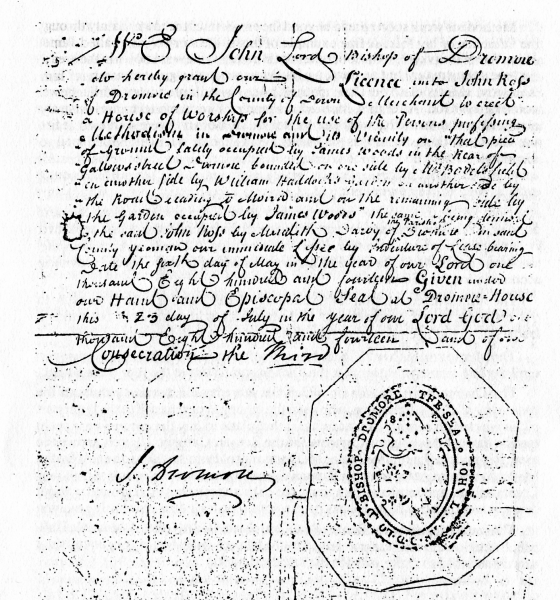 WE John Lord Bishop of Dromore
do hereby grant our Licence unto John Ross
of Dromore in the County of Down Merchant to erect
a House of Worship for the use of the Persons professing
Methodism in Dromore and its Vicinity on that piece
of Ground lately occupied by James Woods in the Rear of
Gallows street Dromore bounded on one side by Mrs field
on another side by William Haddocks Garden on another side by
the Road leading to Moira and on the remaining side by
the Garden occupied by James Woods the same being demised
to the said John Ross by Meredith Darby of Dromore in said
County yeoman our immediate by Indenture of Lease bearing
Date the first day of May in the year of our Lord one
thousand Eight hundred and fourteen Given under
our Hand and Episcopal Seal at Dromore House
this 23 day of July in the year of our Lord God one
thousand Eight hundred and fourteen and of our
Consecration the Third
J. Dromore
THE SEAL JOHN BISHOP DROMORE